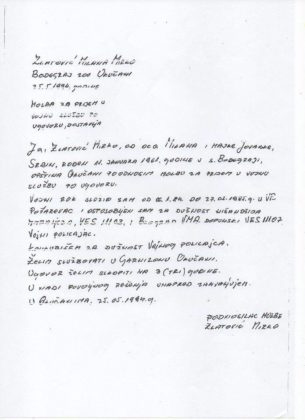 Zlatović Milana Mirko
Bodegraj 200 Okučani
25.5.1994. godine
Molba za prijem u
vojnu službu po
ugovoru, dostavlja
Ja, Zlatović Mirko, od oca Milana i majke Jovanke,
Srbin, rođen 11. januara 1961. godine u s. Bodegraji,
opština Okučani podnosim molbu za prijem u vojnu
službu po ugovoru.
Vojni rok služio sam od
Požarevac i osposobljen sam za dužnost
VES 11103, i Beograd VMA dopunski VES 11107
Vojni policajac.
za dužnost Vojnog policajca.
Želim službovati u Garnizonu Okučani.
Ugovor želim sklopiti na 3 (tri) godine.
U nadi povoljnog rešenja unapred zahvaljujem.
U Okučanima, 25.05.1994.g.
Podnosilac molbe
Zlatović Mirko